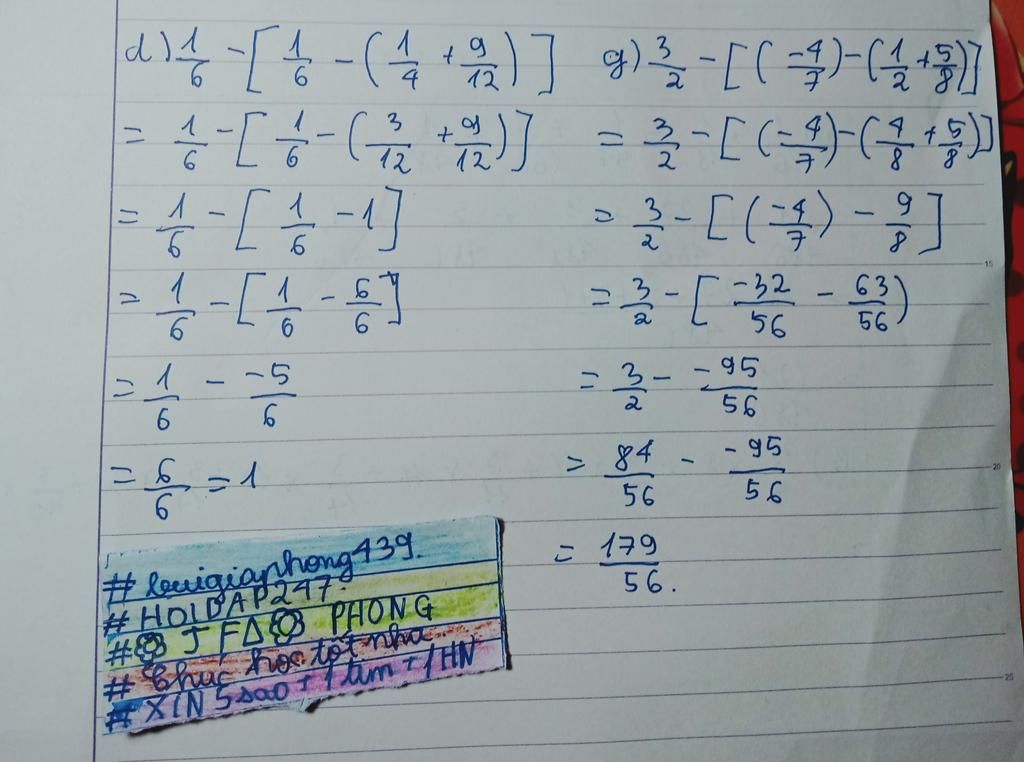 d) 1/6 - [ 1/6 - ( 1/4 + 9/12 ) ]
= 1/6 - [ 1/6 - ( 3/12 + 9/12 ) ]
= 1/6 - [ 1/6 - 1 ]
= 1/6 - [ 1/6 - 6/6 ]
= 1/6 - -5/6
= 6/6 = 1
g) 3/2 - [ ( -4/7 ) - ( 1/2 + 5/8 ) ]
= 3/2 - [ ( -4/7 ) - ( 4/8 + 5/8 ) ]
= 3/2 - [ ( -4/7 ) - 9/8 ]
= 3/2 - [ -32/56 - 63/56 )
= 3/2 - -95/56
= 84/56 - -95/56
= 179/56.
# buigiaphong439.
# HOIDAP247.
# J F Δ PHONG
# Chúc học tốt nha
# XIN 5 sao + 1 tim + 1 HN
15
20
25